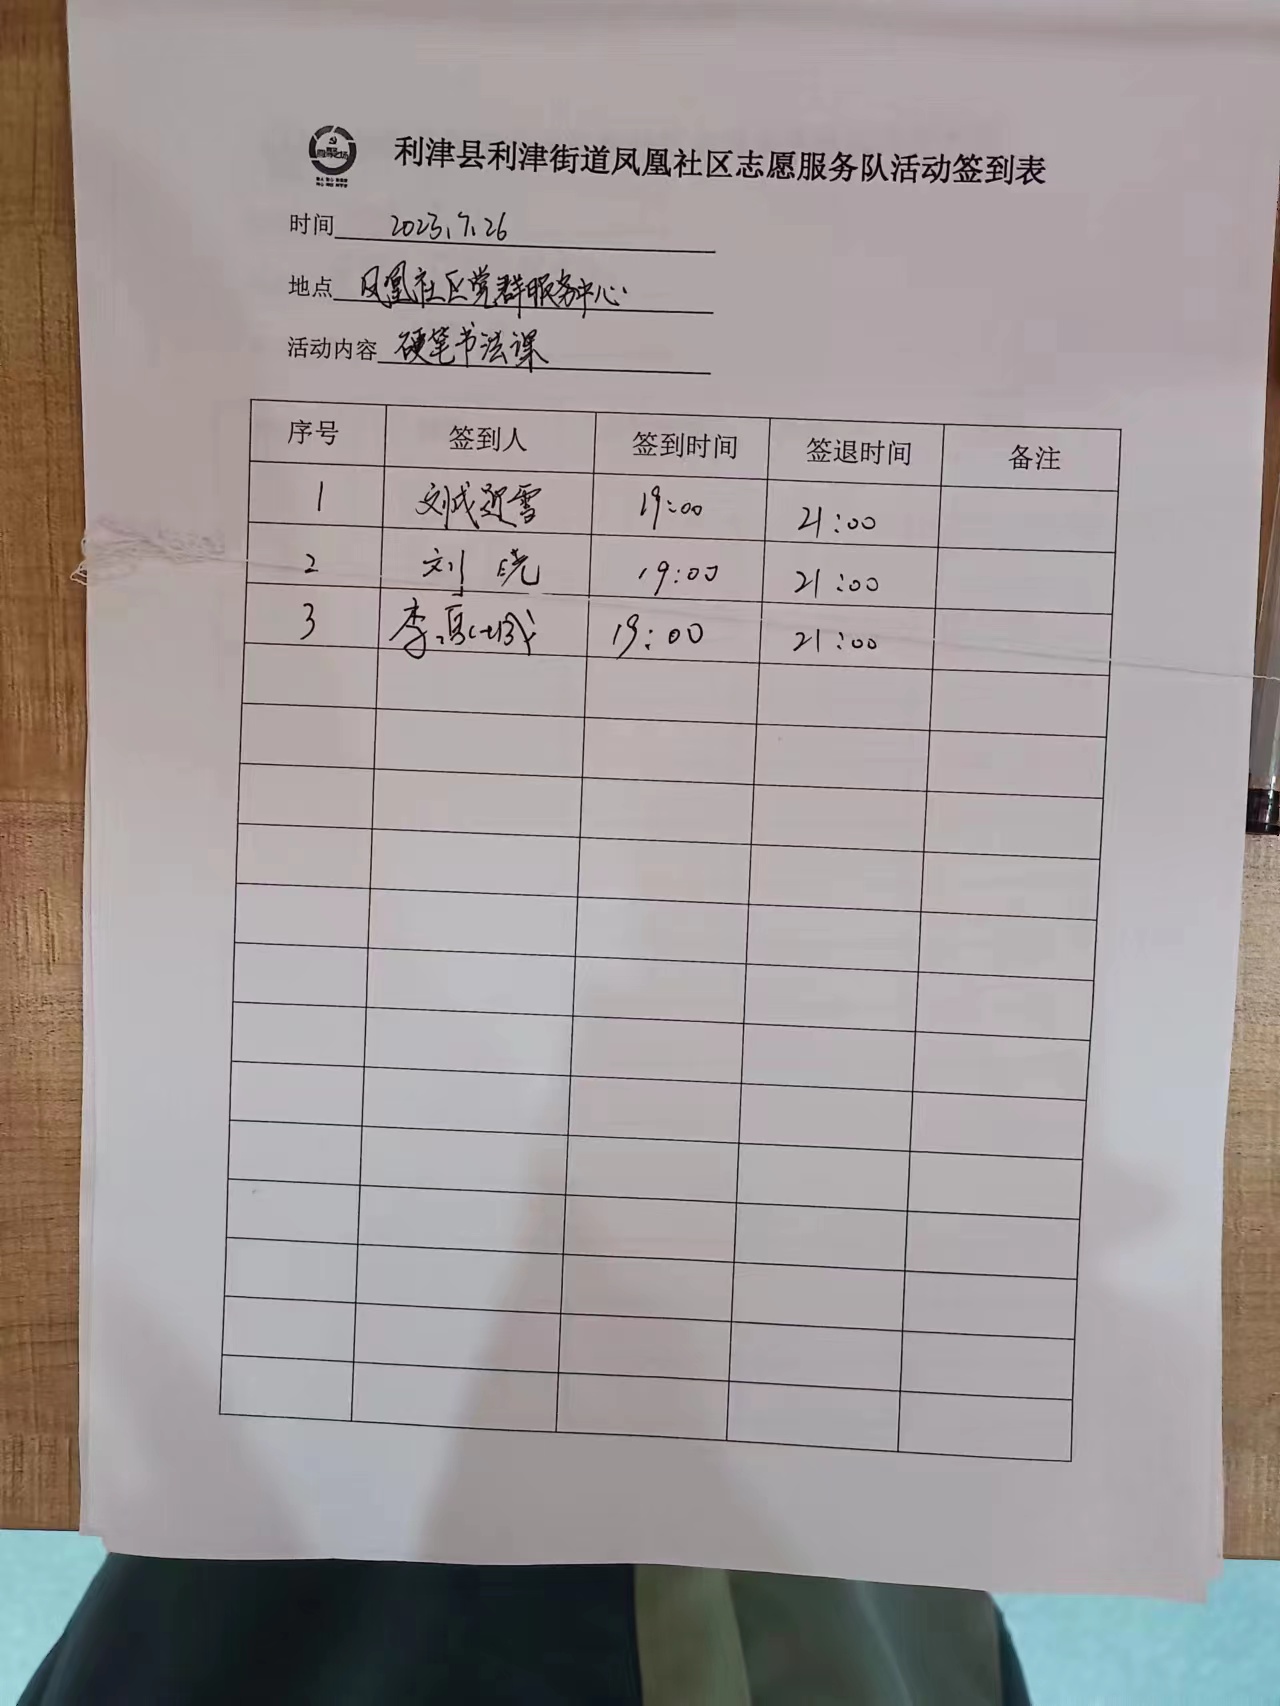 利津县利津街道凤凰社区志愿服务队活动签到表
时间 2023.7.26
地点 凤凰社区党群服务中心
活动内容 硬笔书法课
序号 签到人 签到时间 签退时间 备注
1 刘成迎雪 19:00 21:00
2 刘晓 19:00 21:00
3 李 19:00 21:00